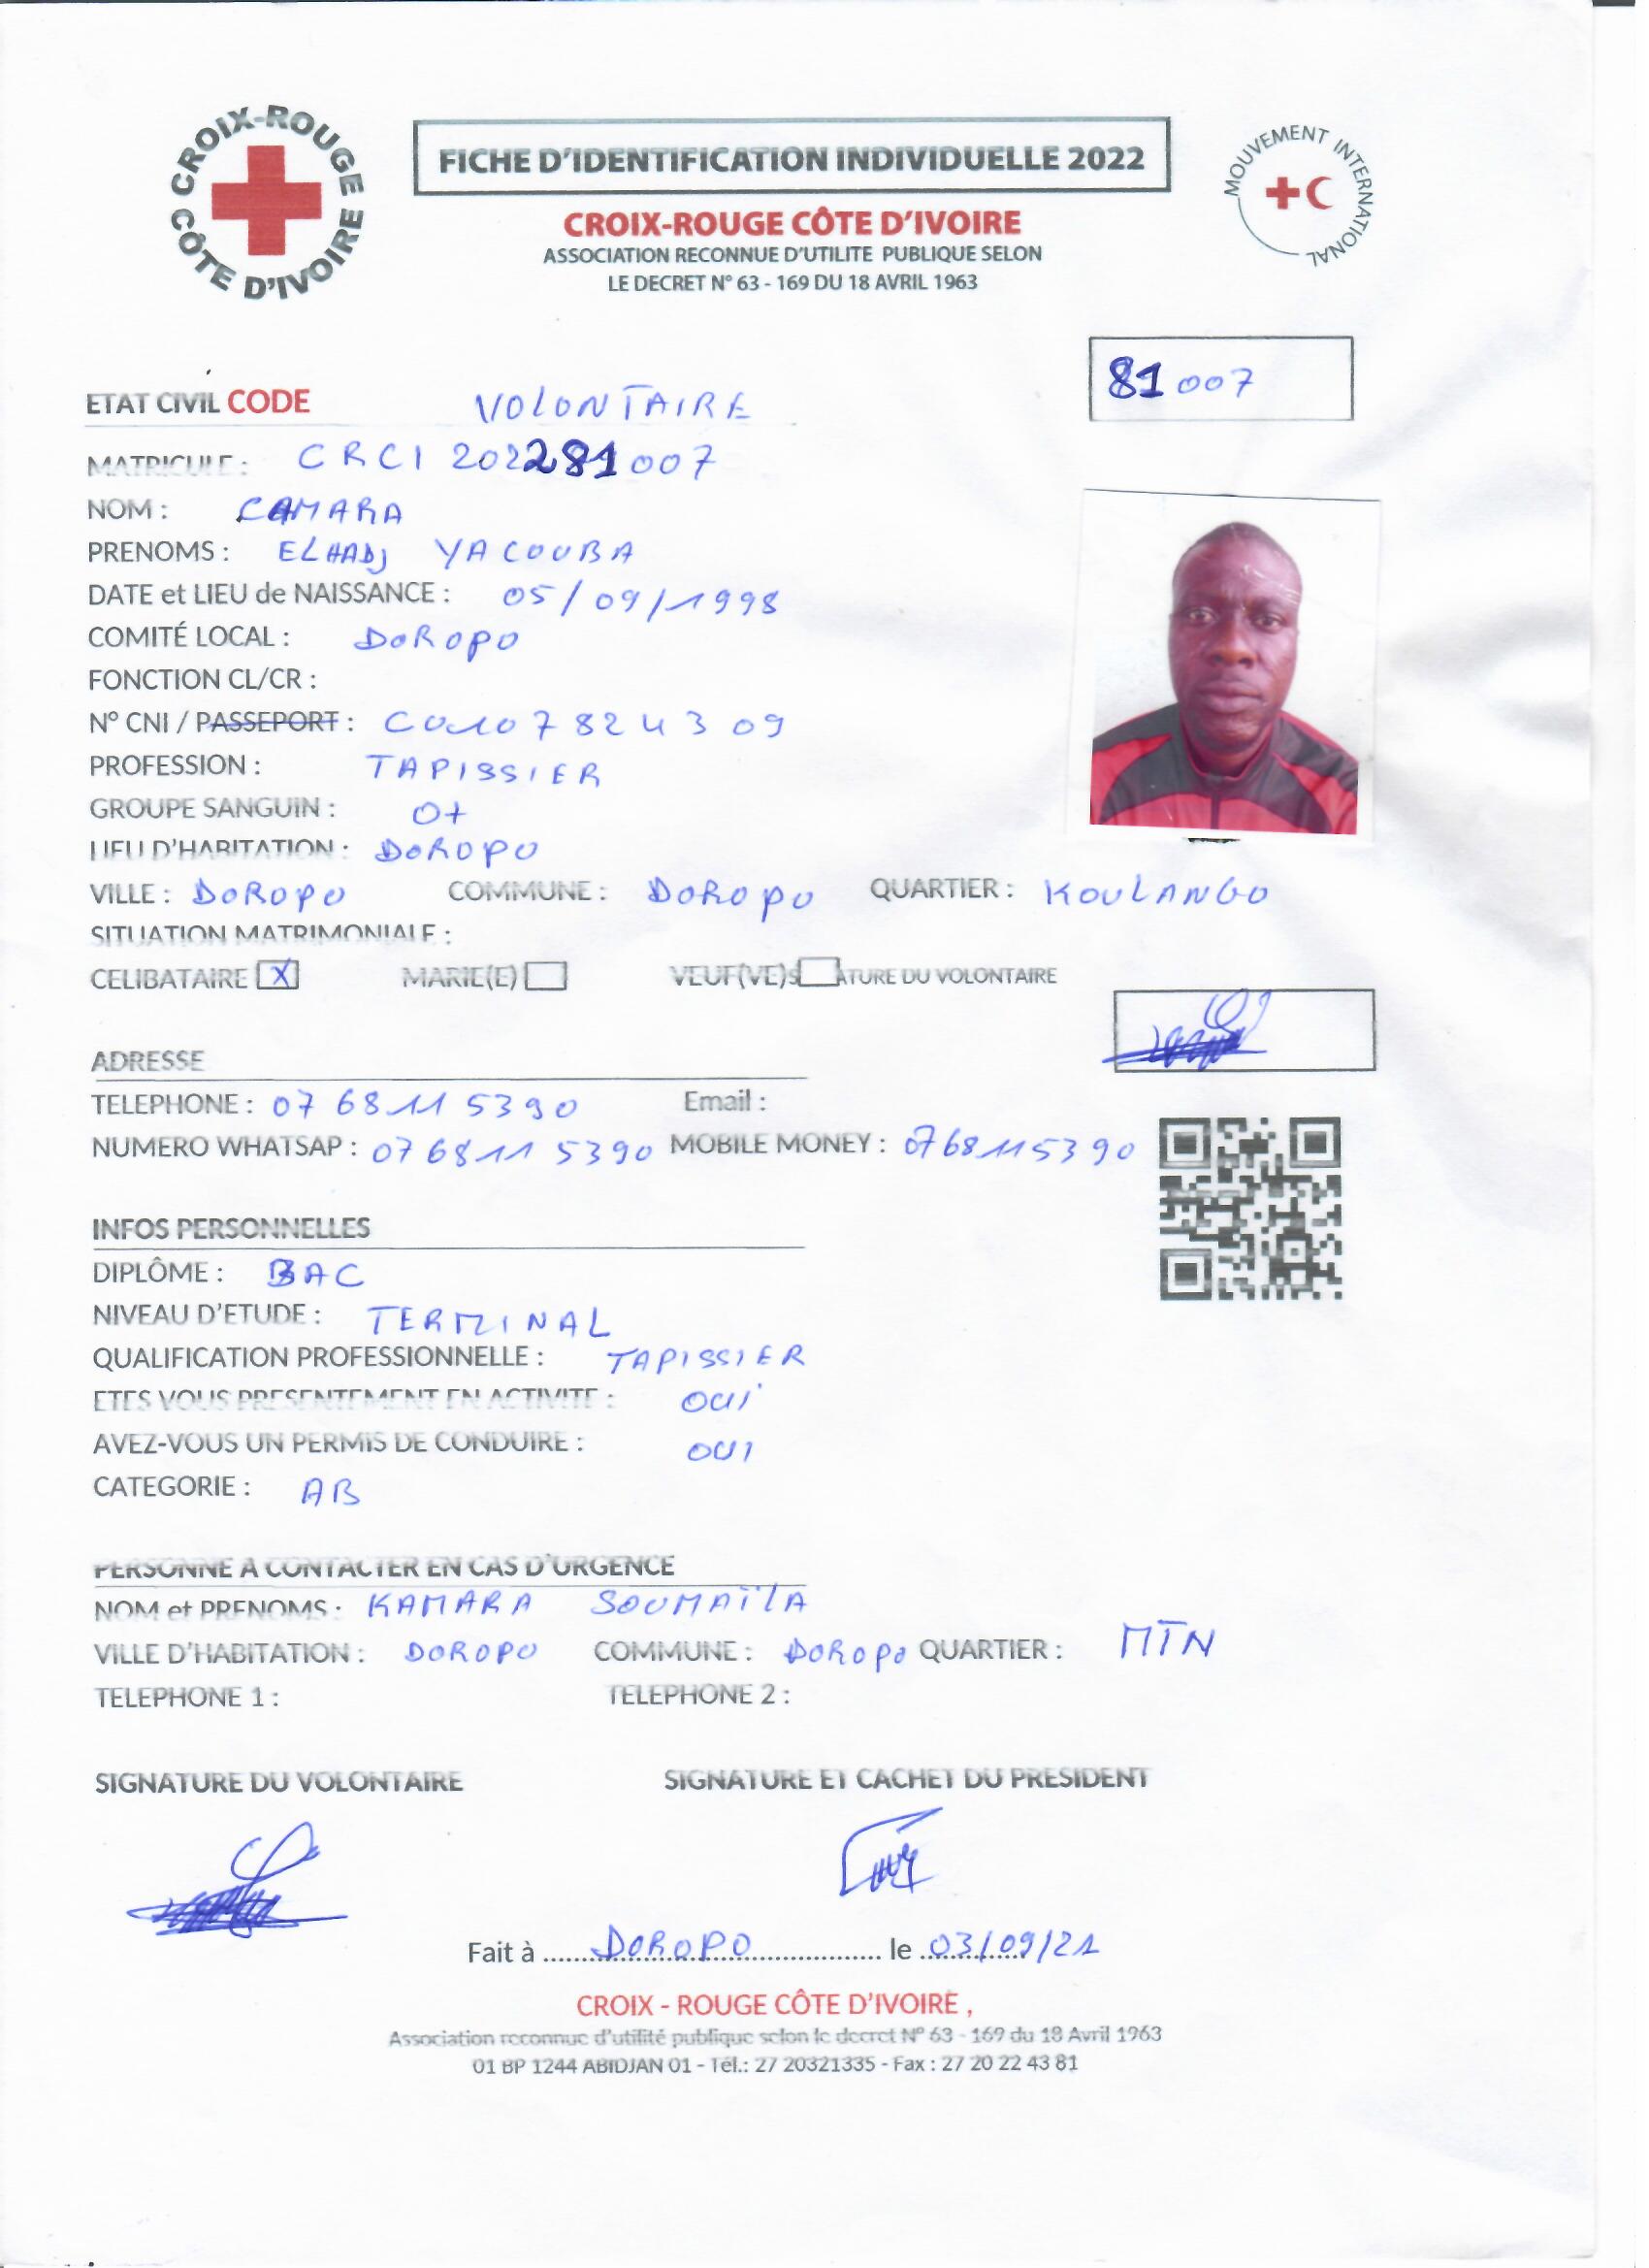 CROIX-ROUGE CÔTE D'IVOIRE
FICHE D'IDENTIFICATION INDIVIDUELLE 2022
MOUVEMENT INTERNATIONAL
CROIX-ROUGE CÔTE D'IVOIRE
ASSOCIATION RECONNUE D'UTILITE PUBLIQUE SELON
LE DECRET N° 63 - 169 DU 18 AVRIL 1963
81007
ETAT CIVIL CODE VOLONTAIRE
MATRICULE : CRCI 202281007
NOM : CAMARA
PRENOMS : ELHADJ YACOUBA
DATE et LIEU de NAISSANCE : 05/09/1998
COMITÉ LOCAL : DOROPO
FONCTION CL/CR :
N° CNI / PASSEPORT : C0107824309
PROFESSION : TAPISSIER
GROUPE SANGUIN : O+
LIEU D'HABITATION : DOROPO
VILLE : DOROPO COMMUNE : DOROPO QUARTIER : KOULANGO
SITUATION MATRIMONIALE :
CELIBATAIRE X MARIE(E) VEUF(VE) S ATURE DU VOLONTAIRE
ADRESSE
TELEPHONE : 07 68 11 5390 Email :
NUMERO WHATSAP : 07 68 11 5390 MOBILE MONEY : 0768115390
INFOS PERSONNELLES
DIPLÔME : BAC
NIVEAU D'ETUDE : TERMINAL
QUALIFICATION PROFESSIONNELLE : TAPISSIER
ETES VOUS PRESENTEMENT EN ACTIVITE : OUI
AVEZ-VOUS UN PERMIS DE CONDUIRE : OUI
CATEGORIE : AB
PERSONNE A CONTACTER EN CAS D'URGENCE
NOM et PRENOMS : KAMARA SOUMAÏLA
VILLE D'HABITATION : DOROPO COMMUNE : DOROPO QUARTIER : MTN
TELEPHONE 1 : TELEPHONE 2 :
SIGNATURE DU VOLONTAIRE SIGNATURE ET CACHET DU PRESIDENT
Fait à DOROPO le 03/09/21
CROIX - ROUGE CÔTE D'IVOIRE ,
Association reconnue d'utilité publique selon le decret N° 63 - 169 du 18 Avril 1963
01 BP 1244 ABIDJAN 01 - Tél.: 27 20321335 - Fax : 27 20 22 43 81